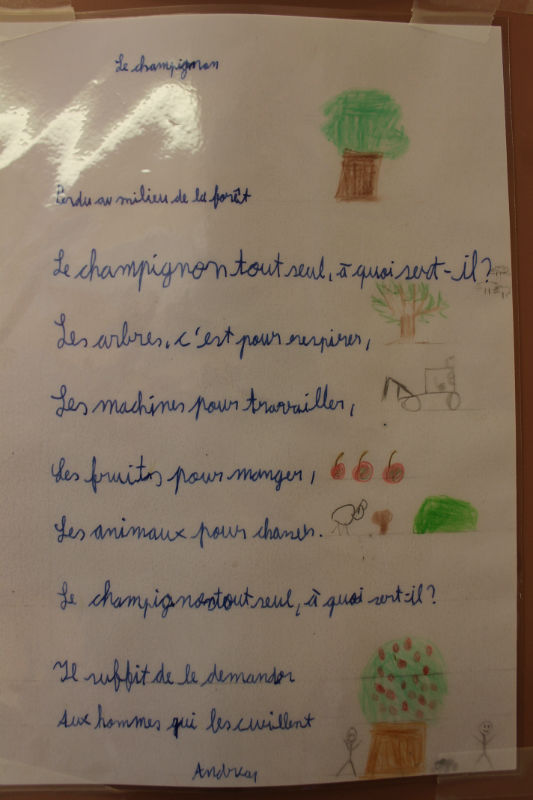 Le champignon
Perdu au milieu de la forêt
Le champignon tout seul, à quoi sert-il?
Les arbres, c'est pour respirer,
Les machines pour travailler,
Les fruits pour manger,
Les animaux pour chasser.
Le champignon tout seul, à quoi sert-il?
Il suffit de le demander
Aux hommes qui les cueillent
Andreas